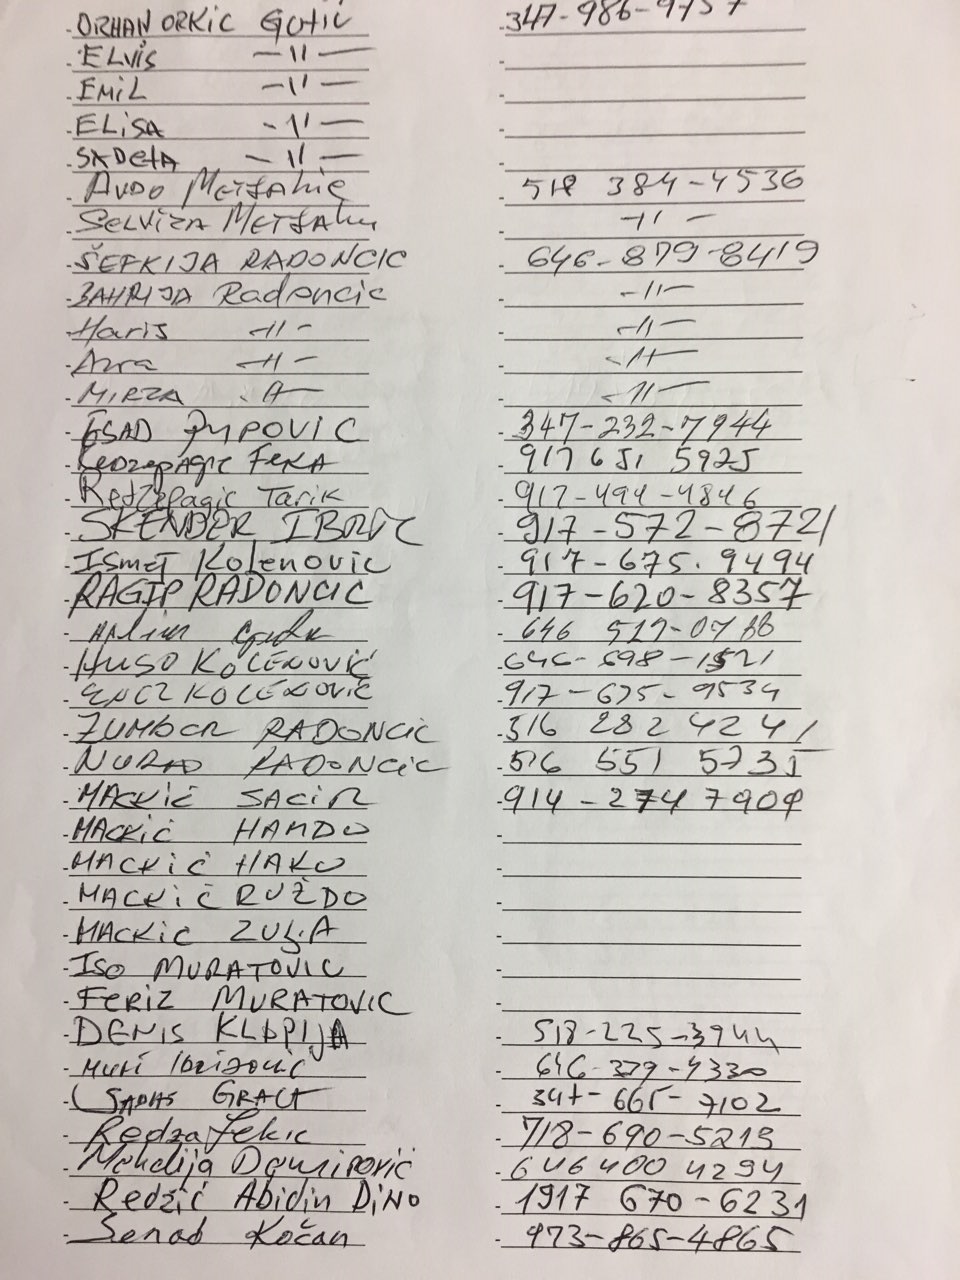 ORHAN ORKIC GOTIC 347-986-9757
ELVIS -11-
EMIL -11-
ELISA -11-
SADETA -11-
AVDO 518 384-4536
SELVIZA -11-
ŠEFKIJA RADONCIC 646-879-8419
BAHRIJA Radoncic -11-
Haris -11- -11-
Azra -11- -11-
MIRZA -11- -11-
ESAD 347-232-7944
Redzepagic FEKA 917 651 5925
Redzepagic Tarik 917-494-4846
SKENDER 917-572-8721
ISMET Kolenovic 917-675.9494
RAGIP RADONCIC 917-620-8357
646
HUSO KOLENOVIĆ 646-598-1521
KOLENOVIĆ 917-675-9534
ZUMBER RADONCIC 516 282 4241
NURAD RADONCIC 516 551 5735
MACKIĆ SACIR 914-274 7909
MACKIĆ HAMDO
MACKIĆ HAKO
MACKIĆ RUŽDO
MACKIC
ISO MURATOVIC
FERIZ MURATOVIC
DENIS KLAPIJA 518-225-3944
646-379-4330
347-665-7102
Redza Fekic 718-690-5219
Mehdija Damirović 646 400 4294
Redzić Abidin DINO 1917 670-6231
Senad Kočan 973-865-4865